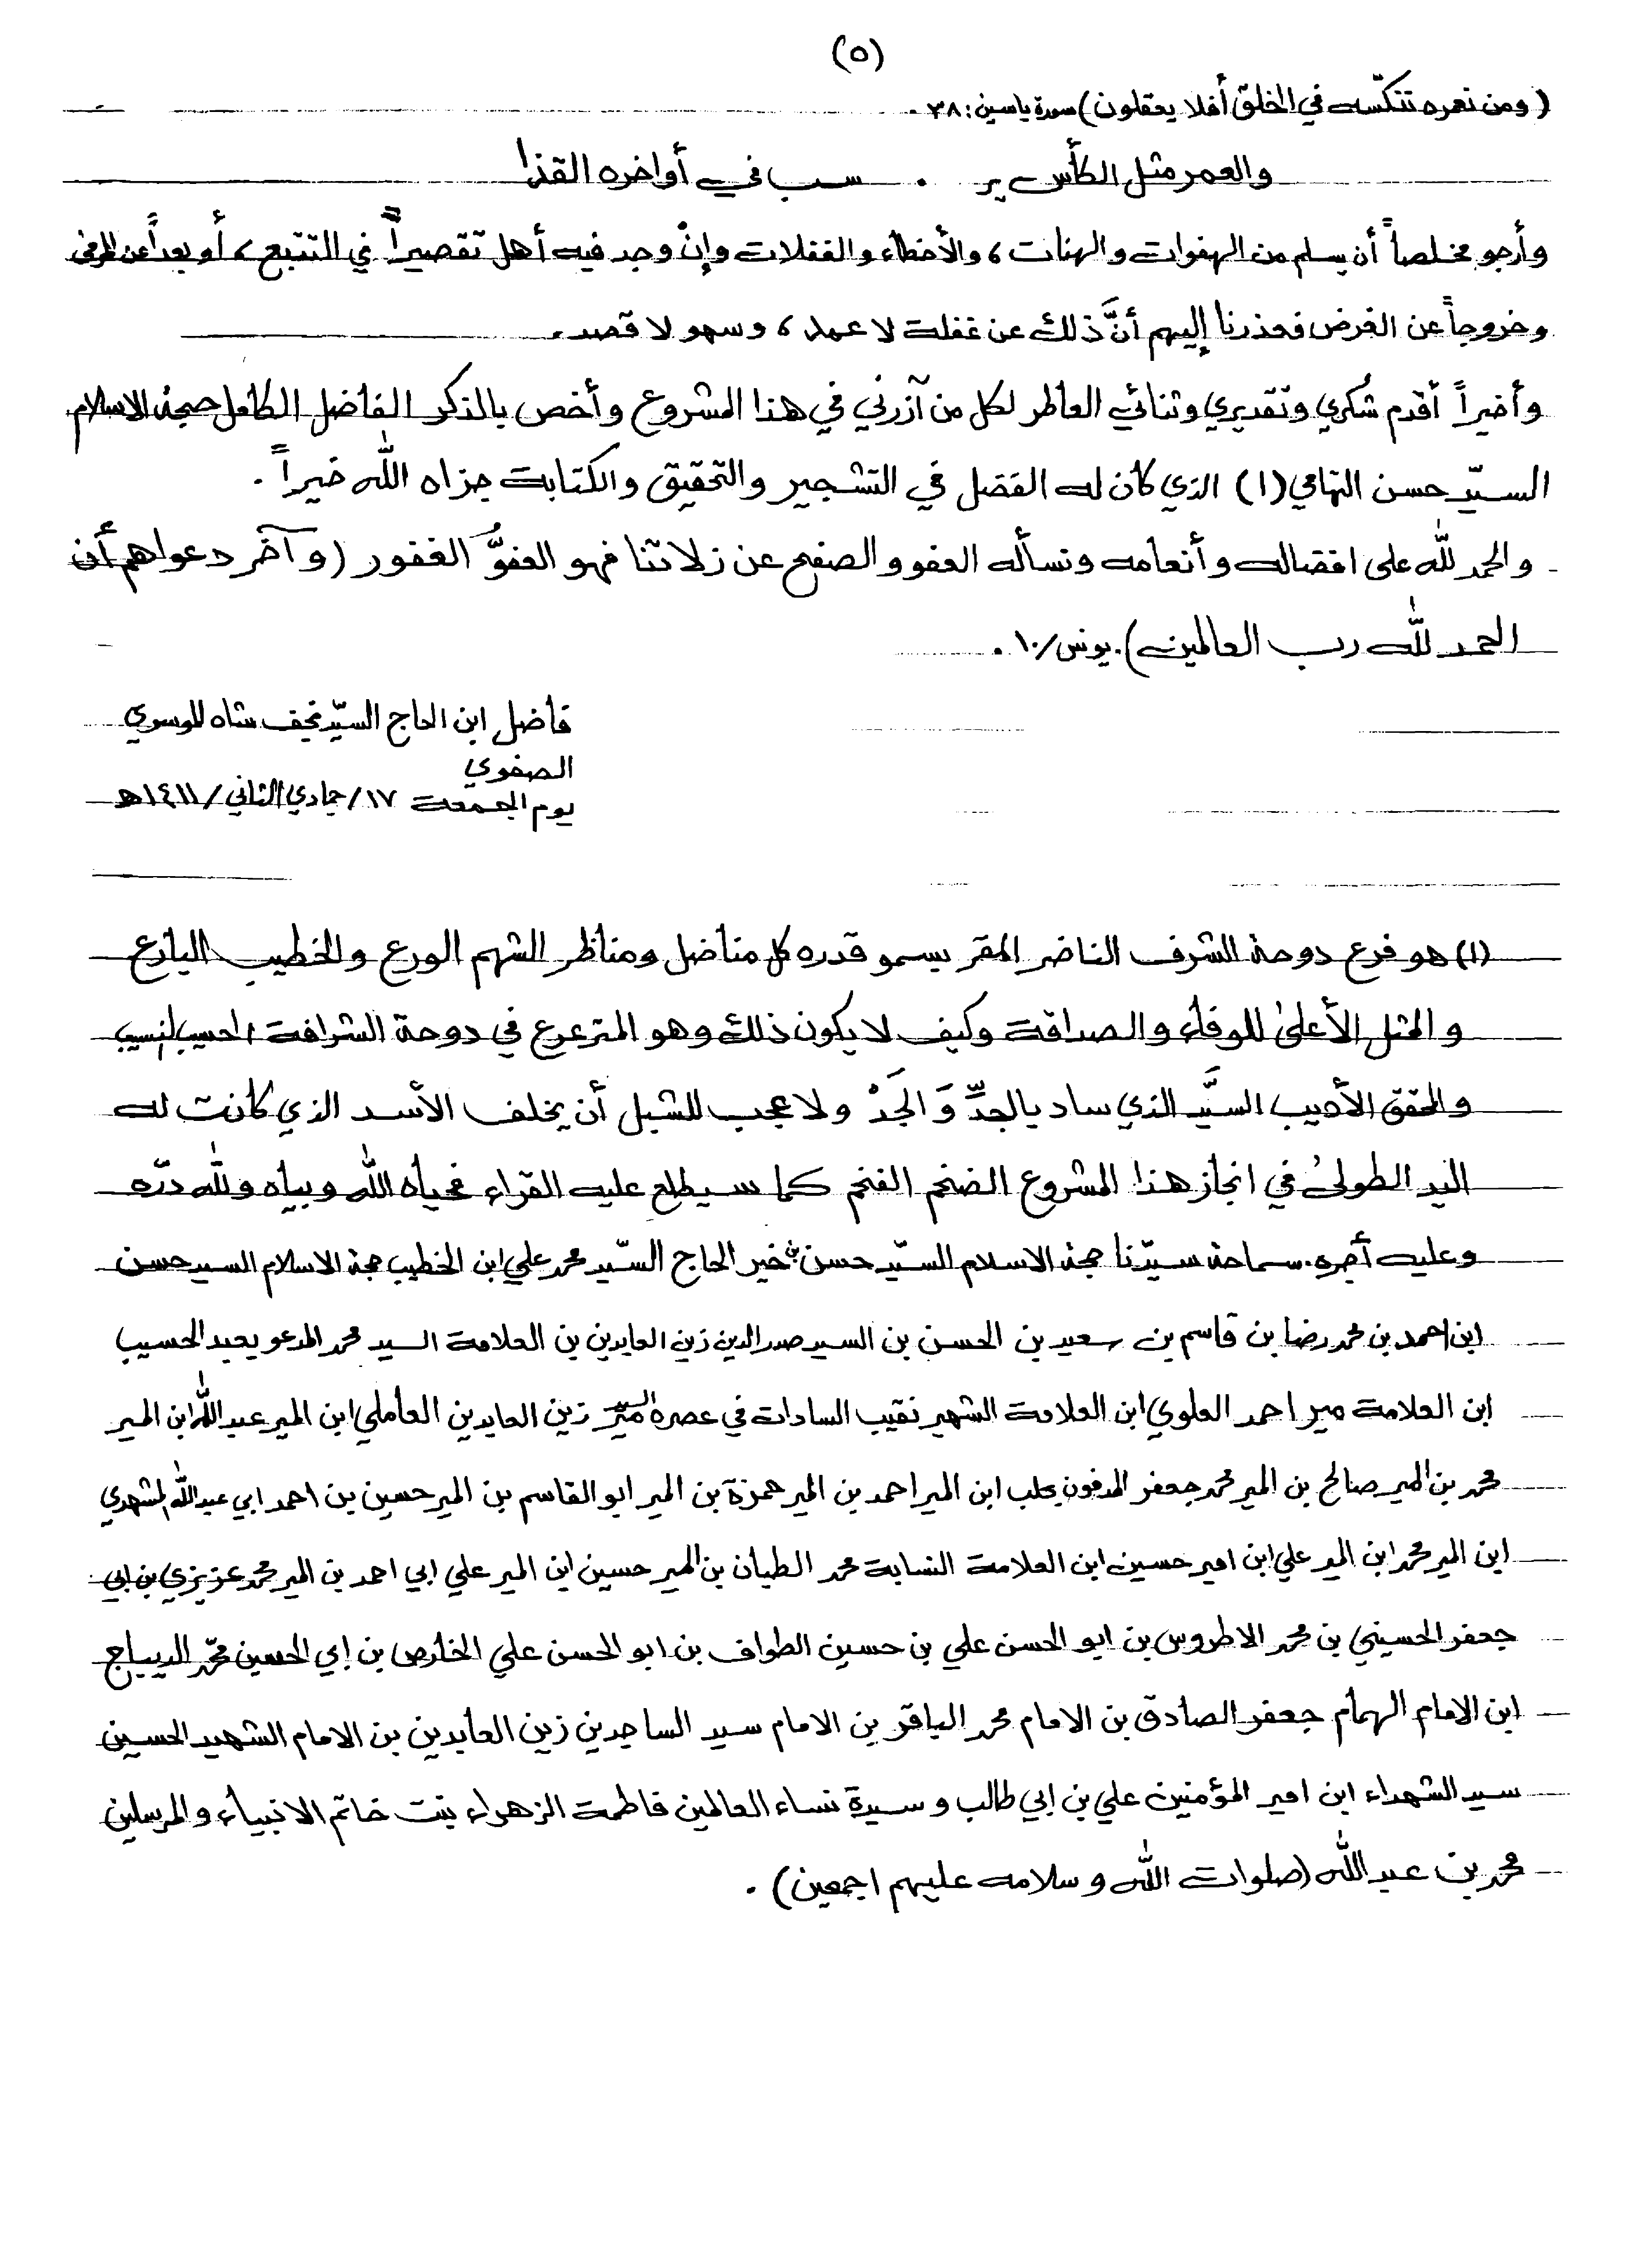 (٥)
(ومن نعمره ننكّسه في الخلق أفلا يعقلون) سورة ياسين: ٣٨.
والعمر مثل الكأس ير . سب في أواخره القذا
وأرجو مخلصاً أن يسلم من الهفوات والهنات، والأخطاء والغفلات وإنْ وجد فيه أهل تقصيراً في التتبع، أو بعداً عن المرمى
وخروجاً عن الغرض فعذرنا إليهم أنَّ ذلك عن غفلة لا عمد، وسهو لا قصد.
وأخيراً أقدم شكري وتقديري وثنائي العاطر لكل من آزرني في هذا المشروع وأخص بالذكر الفاضل الكامل حجة الاسلام
السيّد حسن التهامي (١) الذي كان له الفضل في التشجير والتحقيق والكتابة جزاه الله خيراً.
والحمد لله على افضاله وأنعامه ونسأله العفو والصفح عن زلاتنا فهو العفوُّ الغفور (وآخر دعواهم أن
الحمد لله رب العالمين). يونس/١٠.
فاضل ابن الحاج السيّد نجف شاه الموسوي
الصفوي
يوم الجمعة ١٧/جمادي الثاني/١٤١١هـ
(١) هو فرع دوحة الشرف الناضر المقر بسمو قدره كل مناضل ومناظر الشهم الورع والخطيب البارع
والمثل الأعلىٰ للوفاء والصداقة وكيف لا يكون ذلك وهو المترعرع في دوحة الشرافة الحسيب النسيب
والمحقق الأديب السيَّد الذي ساد بالجِدِّ وَالجَدْ ولا عجب للشبل أن يخلف الأسد الذي كانت له
اليد الطولىٰ في انجاز هذا المشروع الضخم الفخم كما سيطلع عليه القراء فحياه الله وبياه ولله درّه
وعليه أجره. سماحة سيّدنا حجة الاسلام السيّد حسن بن خير الحاج السيّد محمد علي ابن الخطيب حجة الاسلام السيد حسن
ابن احمد بن محمد رضا بن قاسم بن سعيد بن الحسن بن السيد صدر الدين زين العابدين بن العلامة السيد محمد المدعو بعبد الحسيب
ابن العلامة مير احمد العلوي ابن العلامة الشهير نقيب السادات في عصره السيد مير زين العابدين العاملي ابن المير عبد الله ابن المير
محمد بن المير صالح بن المير محمد جعفر المدفون بحلب ابن المير احمد بن المير حمزة بن المير ابو القاسم بن المير حسين بن احمد ابي عبد الله المشهدي
ابن المير محمد ابن المير علي ابن امير حسين ابن العلامة النسابة محمد الطيان بن المير حسين ابن المير علي ابي احمد بن المير محمد عزيزي بن ابي
جعفر الحسيني بن محمد الاطروس بن ابو الحسن علي بن حسين الطواف بن ابو الحسن علي الخارص بن إبي الحسين محمّد الديباج
ابن الامام الهمام جعفر الصادق بن الامام محمد الباقر بن الامام سيد الساجدين زين العابدين بن الامام الشهيد الحسين
سيد الشهداء ابن امير المؤمنين علي بن ابي طالب وسيدة نساء العالمين فاطمة الزهراء بنت خاتم الانبياء والمرسلين
محمد بن عبد الله (صلوات الله وسلامه عليهم اجمعين).